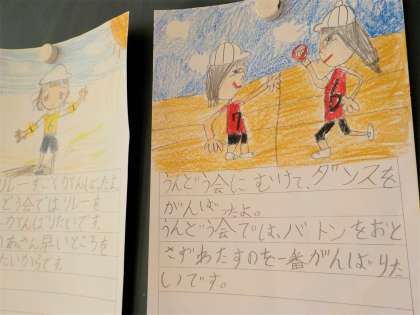 うんどう会にむけて、ダンスを
がんばったよ。
うんどう会では、バトンをおと
さずわたすのを一番がんばりた
いです。
リレーすごくがんばったよ
どう会ではリレーを
がんばりたいです。
あさん早いところを
たいからです。
7